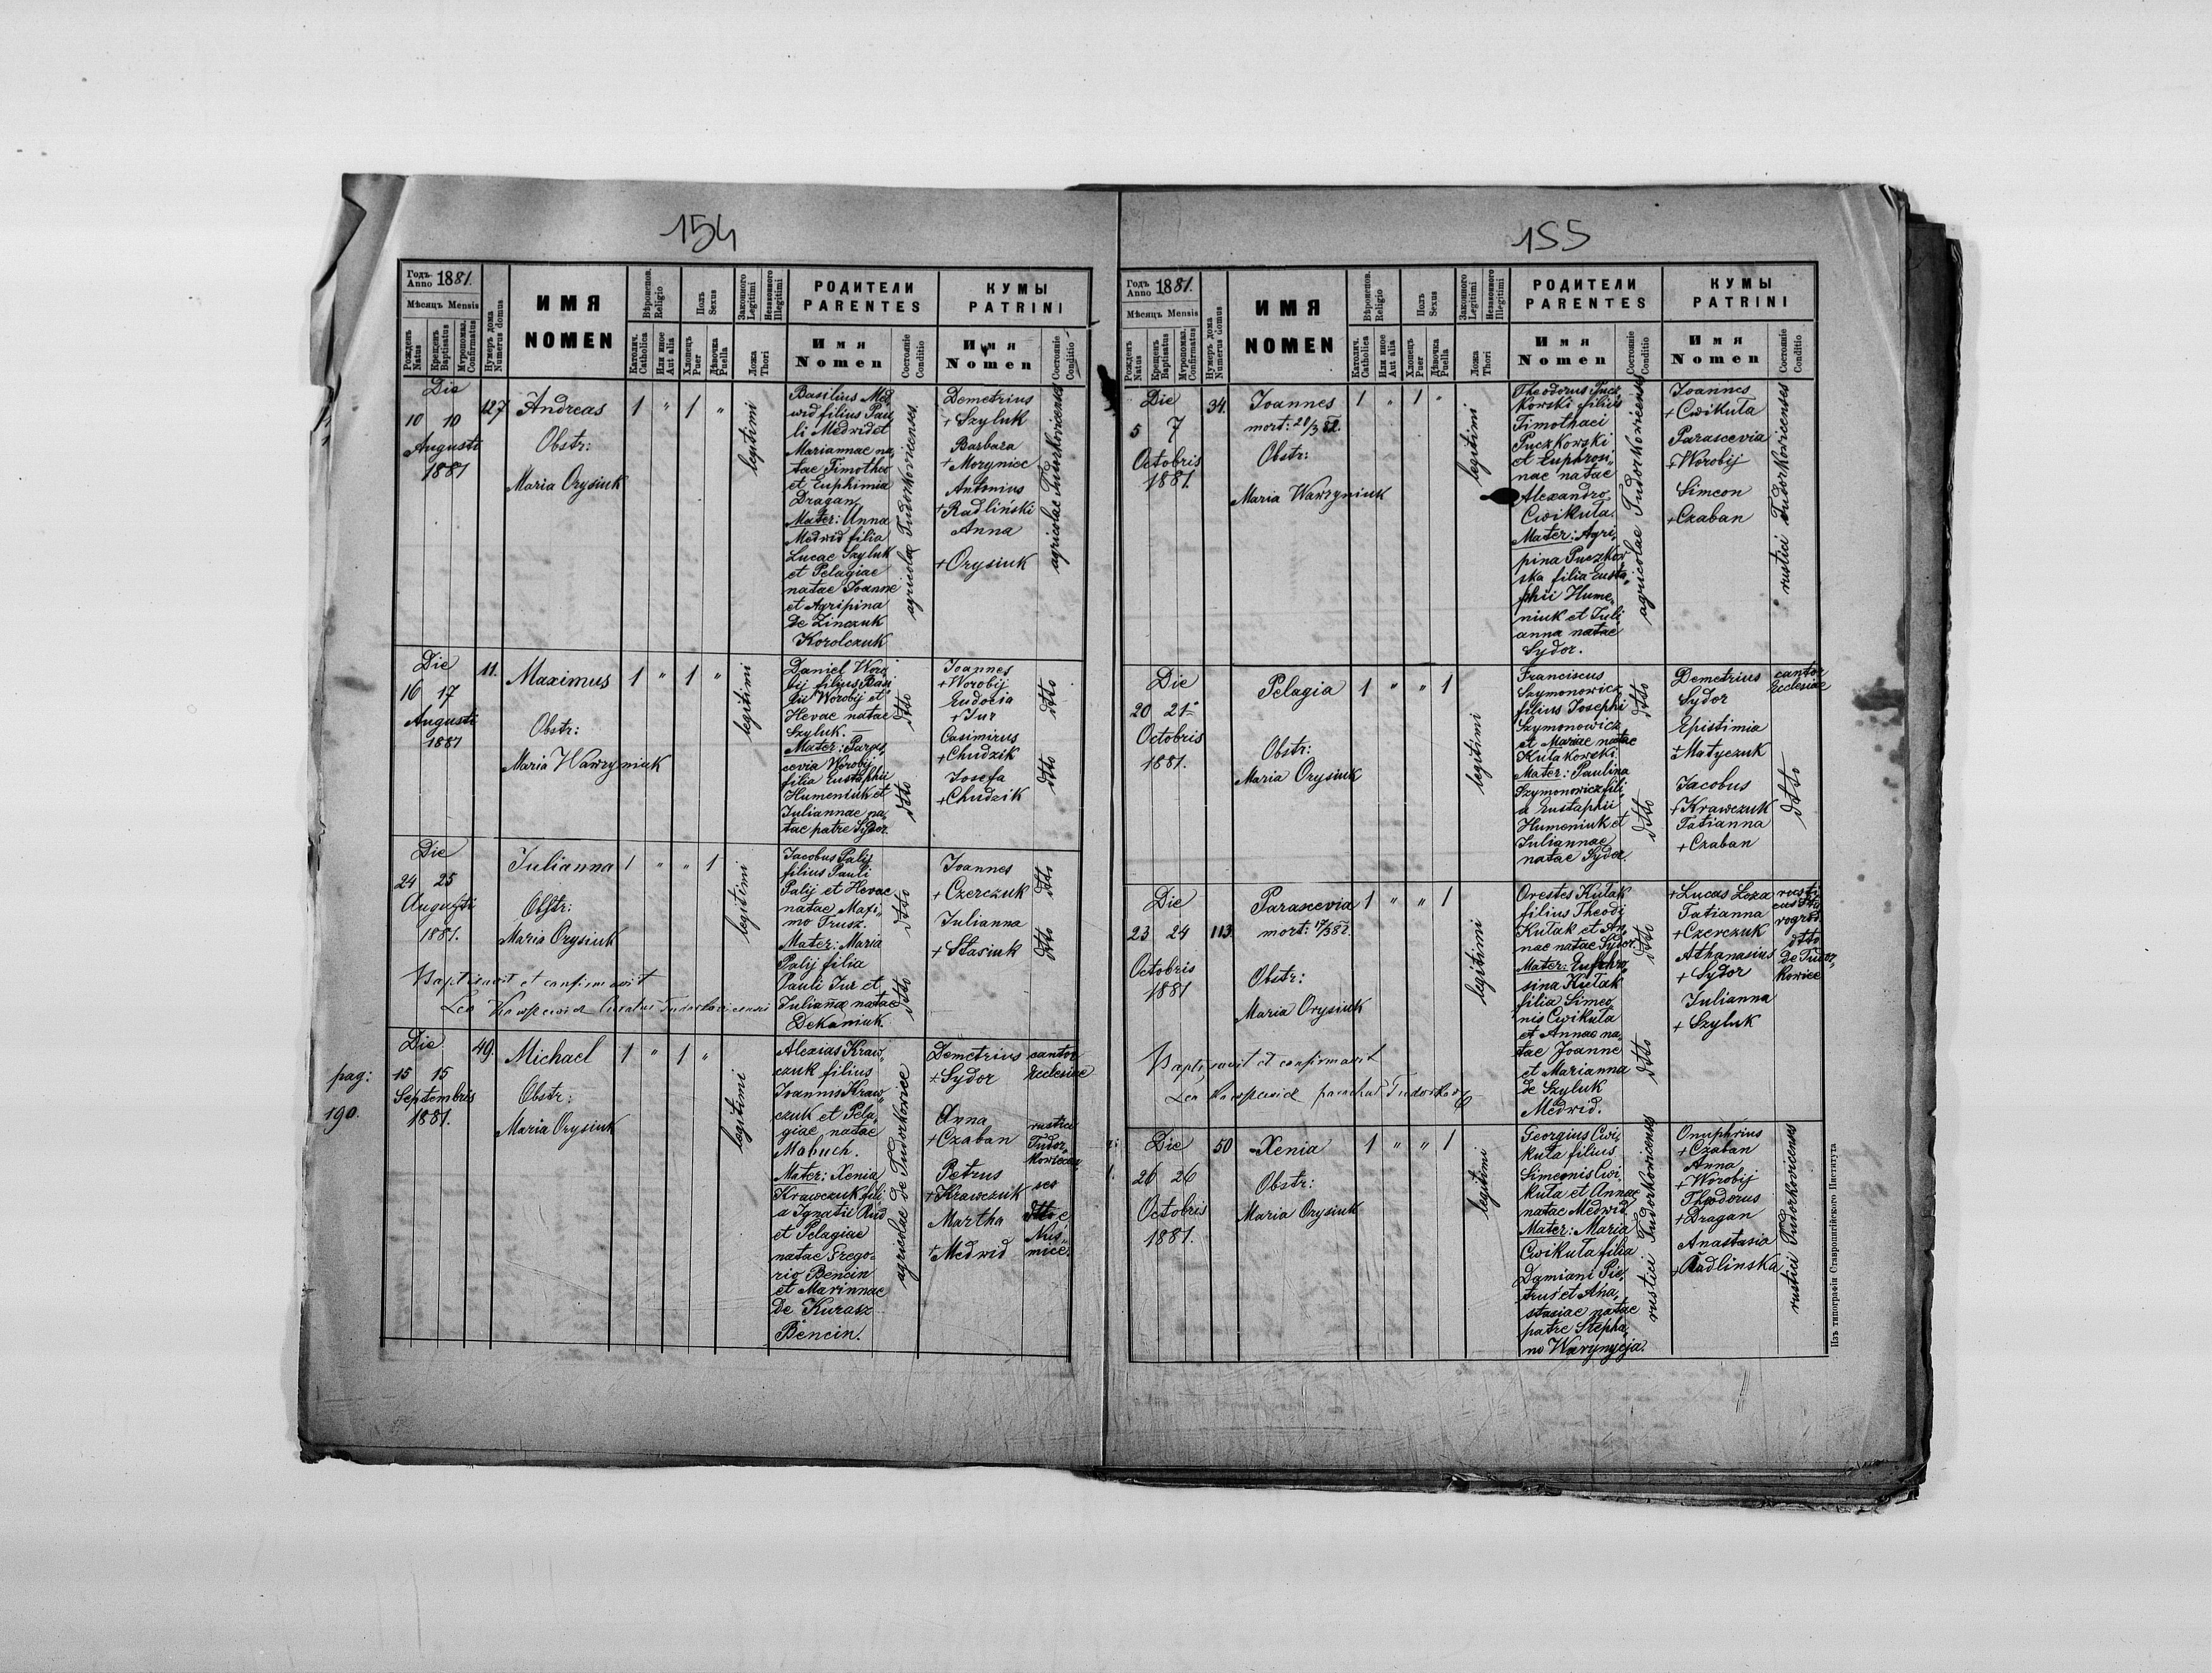 154
Годъ Anno 1881.
Мѣсяцъ Mensis
Рожденъ Natus
Крещенъ Baptisatus
Мѵропомаз. Confirmatus
Нумеръ дома Numerus domus
ИМЯ
NOMEN
Вѣроиспов. Religio
Католич. Catholica
Или иное Aut alia
Полъ Sexus
Хлопецъ Puer
Дѣвочка Puella
Законного Legitimi
Незаконного Illegitimi
Ложа Thori
РОДИТЕЛИ
PARENTES
Имя
Nomen
Состояніе Conditio
КУМЫ
PATRINI
Имя
Nomen
Состояніе Conditio
Die
10 10
Augusti
1881
127
Andreas
Obstr:
Maria Orysiuk
1 " 1 "
legitimi
Basilius Med
wid filius Pau
li Medwid et
Mariannae na
tae Timotheo
et Euphimia
Dragan
Mater: Anna
Medwid filia
Lucae Szyluk
et Pelagiae
natae Joanne
et Agripina
de Zinczuk
Korolczuk
agricolae Tudorkovicenses
Demetrius
+ Szyluk
Barbara
+ Moryniec
Antonius
+ Radliński
Anna
+ Orysiuk
agricolae Tudorkovicenses
Die
16 17
Augusti
1881
11.
Maximus
Obstr:
Maria Wawryniuk
1 " 1 "
legitimi
Daniel Woro
bij filius Basi
lii Worobij et
Hevae natae
Szyluk.
Mater: Paras,
cevia Worobij
filia Eustaphii
Humeniuk et
Juliannae na,
tae patre Sydor.
dtto
dtto
Joannes
+ Worobij
Eudocia
+ Jur
Casimirus
+ Chudzik
Josefa
+ Chudzik
dtto
dtto
Die
24 25
Augusti
1881.
Julianna
Obstr:
Maria Orysiuk
1 " " 1
legitimi
Jacobus Palij
filius Pauli
Palij et Hevae
natae Maxi,
mo Trusz.
Mater: Maria
Palij filia
Pauli Jur et
Juliannae natae
Dekaniuk.
dtto
dtto
Joannes
+ Czerczuk
Julianna
+ Stasiuk
dtto
dtto
Baptisavit et confirmavit
Leo Curatus Tudorkovicensis
pag:
190.
Die
15 15
Septembris
1881.
49.
Michael
Obstr:
Maria Orysiuk
1 " 1 "
legitimi
Alexias Kraw,
czuk filius
Joannis Kraw,
czuk et Pela,
giae natae
Mabuch.
Mater: Xenia
Krawczuk fili
a Ignatii Rud
et Pelagiae
natae Grego-
rio Bencin
et Marinnae
de Kurasz
Bencin.
agricolae de Tudorkowice
Demetrius
+ Sydor
Anna
+ Czaban
Petrus
+ Krawczuk
Martha
+ Medwid
cantor
Ecclesiae
rustici
Tudor,
kowicen,
ses
dtto e
Nus,
mice.
155
Годъ Anno 1881.
Мѣсяцъ Mensis
Рожденъ Natus
Крещенъ Baptisatus
Мѵропомаз. Confirmatus
Нумеръ дома Numerus domus
ИМЯ
NOMEN
Вѣроиспов. Religio
Католич. Catholica
Или иное Aut alia
Полъ Sexus
Хлопецъ Puer
Дѣвочка Puella
Законного Legitimi
Незаконного Illegitimi
Ложа Thori
РОДИТЕЛИ
PARENTES
Имя
Nomen
Состояніе Conditio
КУМЫ
PATRINI
Имя
Nomen
Состояніе Conditio
Die
5 7
Octobris
1881.
34.
Joannes
mort: 20/3 82.
Obstr:
Maria Wawryniuk
1 " 1 "
legitimi
Theodorus Pucz,
kowski filius
Timothaei
Puczkowski
et Euphrosi,
nae natae
Alexandro
Cwikuła.
Mater: Agri,
pina Puczkow
ska filia Eusta,
phii Hume,
niuk et Juli
anna natae
Sydor.
agricolae Tudorkovicenses
Joannes
+ Cwikuła
Parascevia
+ Worobij
Simeon
+ Czaban
rustici Tudorkowicenses
Die
20 21
Octobris
1881.
Pelagia
Obstr:
Maria Orysiuk
1 " " 1
legitimi
Franciscus
Szymonowicz
filius Josephi
Szymonowicz
et Mariae natae
Kułakowski
Mater: Paulina
Szymonowicz fili,
a Eustaphii
Humeniuk et
Juliannae
natae Sydor.
dtto
dtto
Demetrius
Sydor
Epistimia
+ Matyczuk
Jacobus
+ Krawczuk
Tatianna
+ Czaban
cantor
Ecclesiae
dtto
Die
23 24
Octobris
1881
113.
Parascevia
mort: 17/3 82.
Obstr:
Maria Orysiuk
1 " " 1
legitimi
Orestes Kułak
filius Theodi
Kułak et An,
nae natae Sydor.
Mater: Euphro,
sina Kułak
filia Simeo,
nis Cwikuła
et Annae na,
tae Joanne
et Marianna
de Szyluk
Medwid.
dtto
dtto
+ Lucas Loza
Tatianna
+ Czerczuk
Athanasius
+ Sydor
Julianna
+ Szyluk
dtto
de Tudor,
kowice
Baptisavit et confirmavit
Leo parochus
Die
26 26
Octobris
1881.
50
Xenia
Obstr:
Maria Orysiuk
1 " " 1
legitimi
Georgius Cwi,
kuła filius
Simeonis Cwi,
kuła et Annae
natae Medwid.
Mater: Maria
Cwikuła filia
Damiani Pie,
trus et Ana,
stasiae natae
patre Stepha,
no Warynycja.
rustici Tudorkowicenses
Onuphrius
+ Czaban
Anna
+ Worobij
Theodorus
+ Dragan
Anastasia
+ Radlinska
rustici Tudorkowicenses
Изъ типографіи Ставропигійского Института